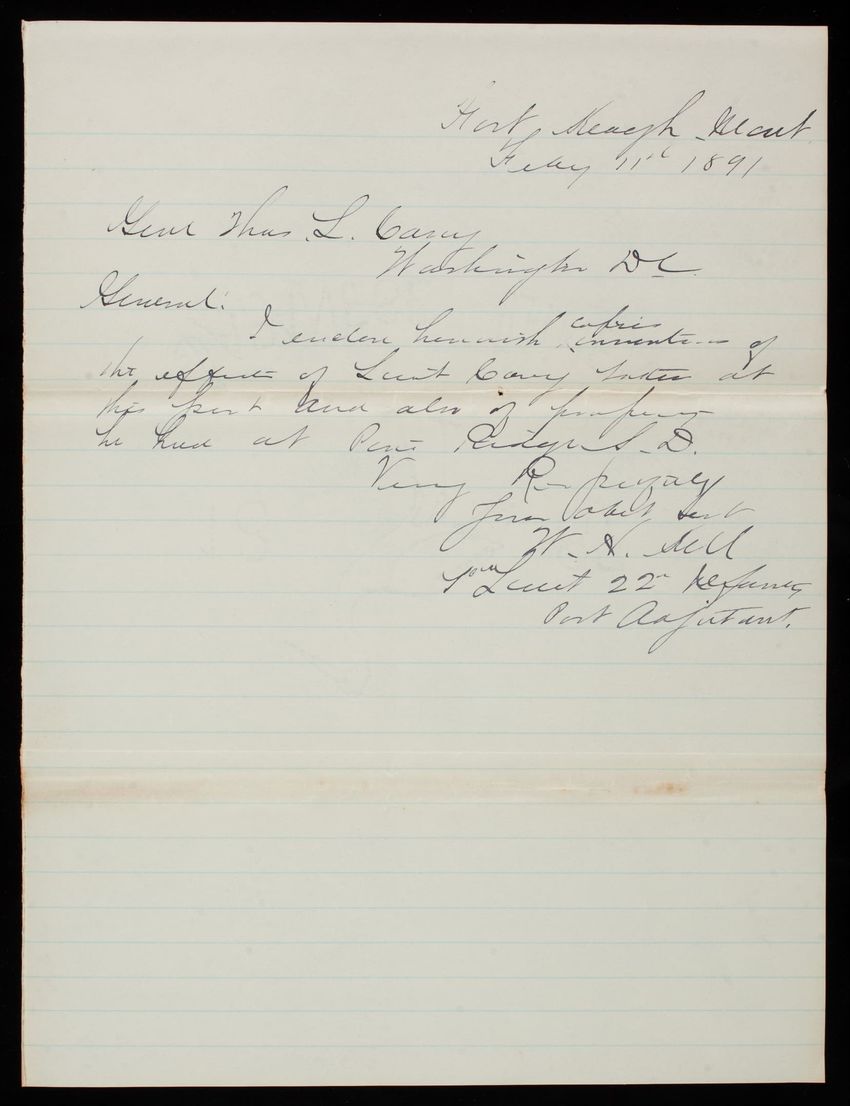 Fort Keogh Mont.
Feby 11th 1891
Genl Thos. L. Casey
Washington D C.
General:
I enclose herewith copies inventories of
the effects of Lieut Casey taken at
this post and also of property
he had at Pine Ridge S. D.
Very Respectfully
Your obdt servt
W. H.
1st Lieut 22nd Infantry
Post Adjutant.